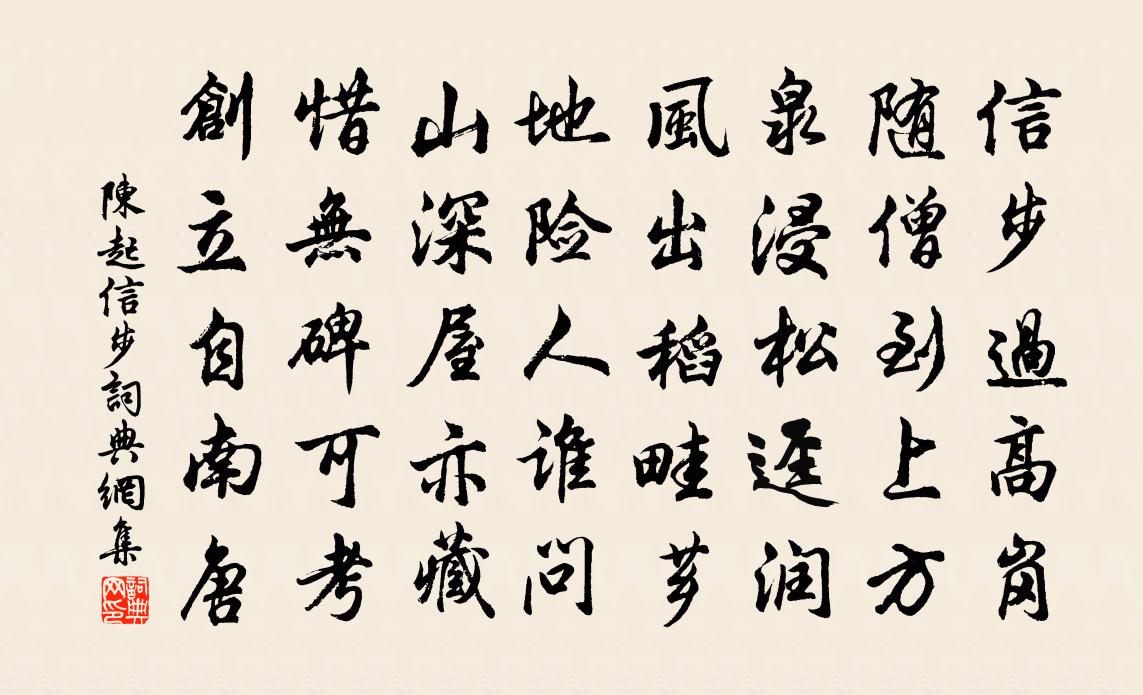 信步過高崗
随僧到上方
泉浸松逕润
風出稻畦芗
地险人谁问
山深屋亦藏
惜無碑可考
創立自南唐
陳起信步詞典網集
詞典网印